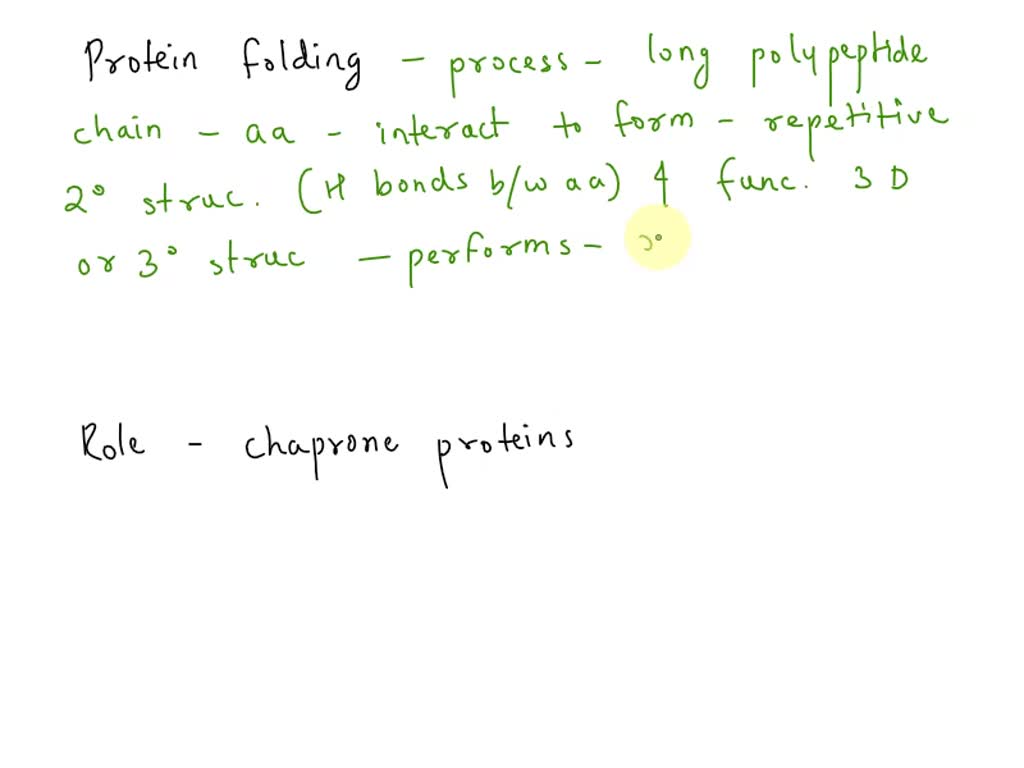 Protein folding - process - long polypeptide
chain - aa - interact to form - repetitive
2° struc. (H bonds b/w aa) & func. 3 D
or 3° struc - performs -
Role - chaprone proteins